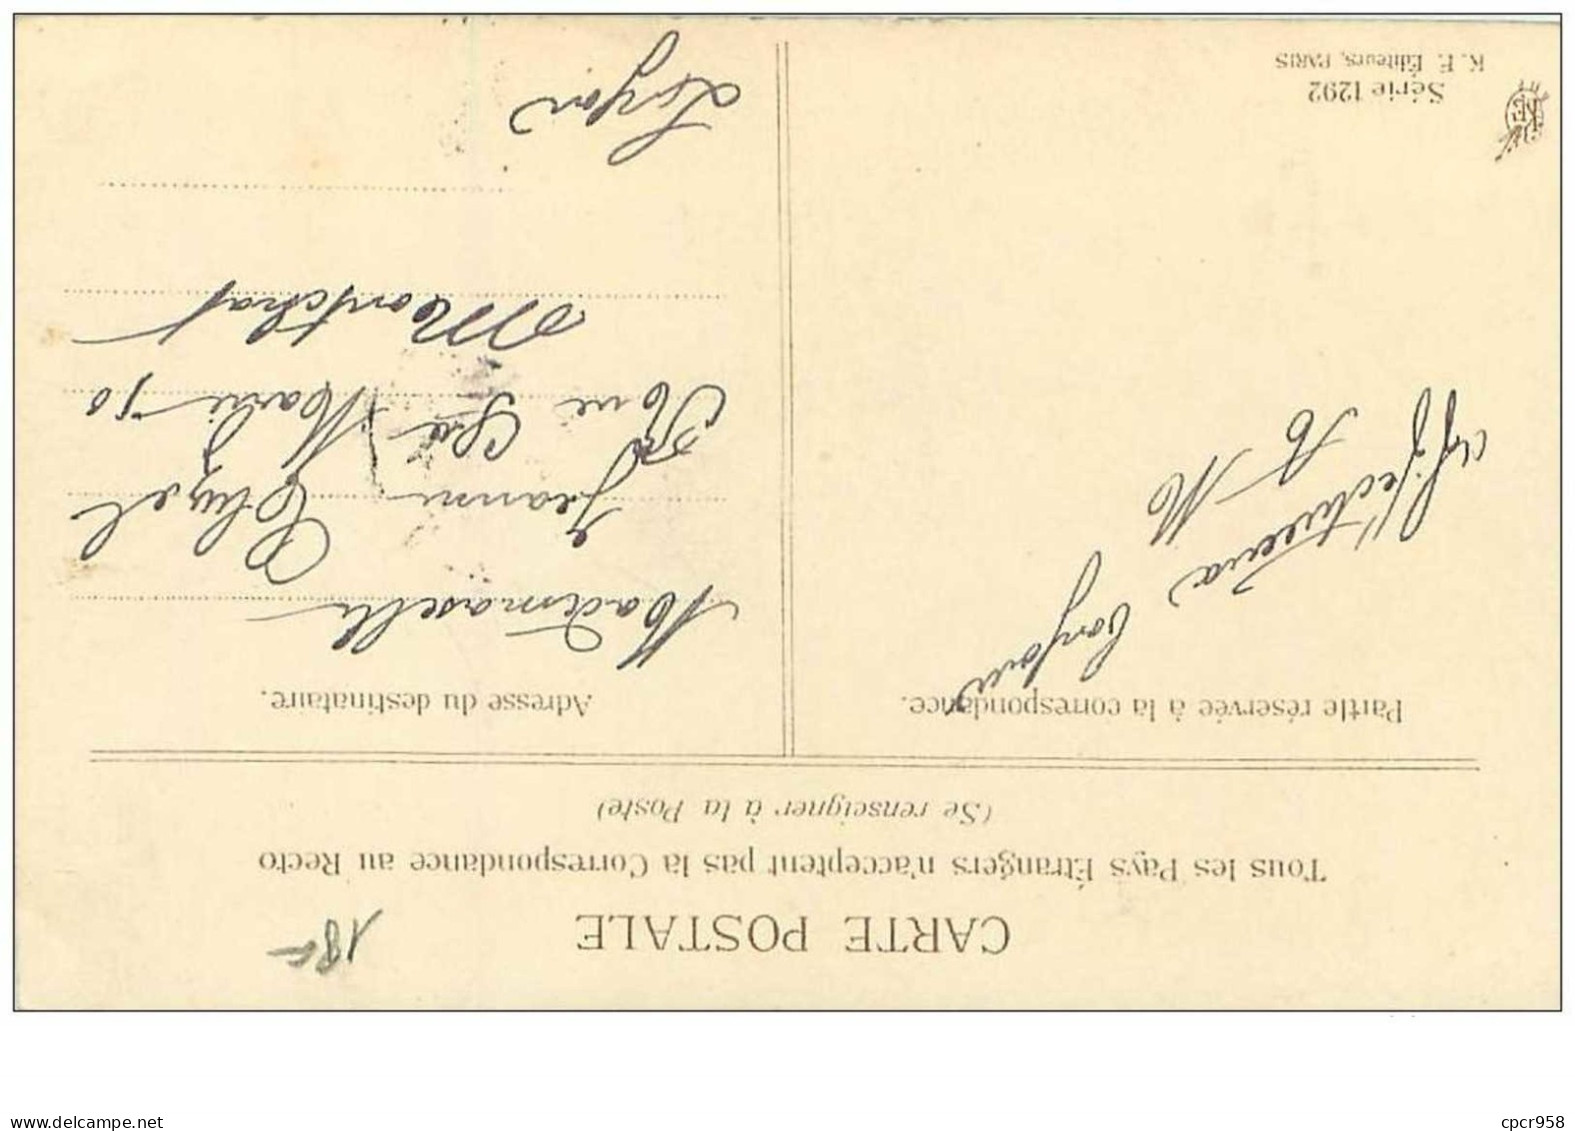 CARTE POSTALE
18
Tous les Pays Étrangers n'acceptent pas la Correspondance au Recto
(Se renseigner à la Poste)
Partie réservée à la correspondance.
Adresse du destinataire.
Affectueux
bonjour
Mademoiselle
Jeanne
Rue Ste Marie 10
Montchat
Lyon
Série 1292
K. F. Éditeurs, PARIS
www.delcampe.net
cpcr958